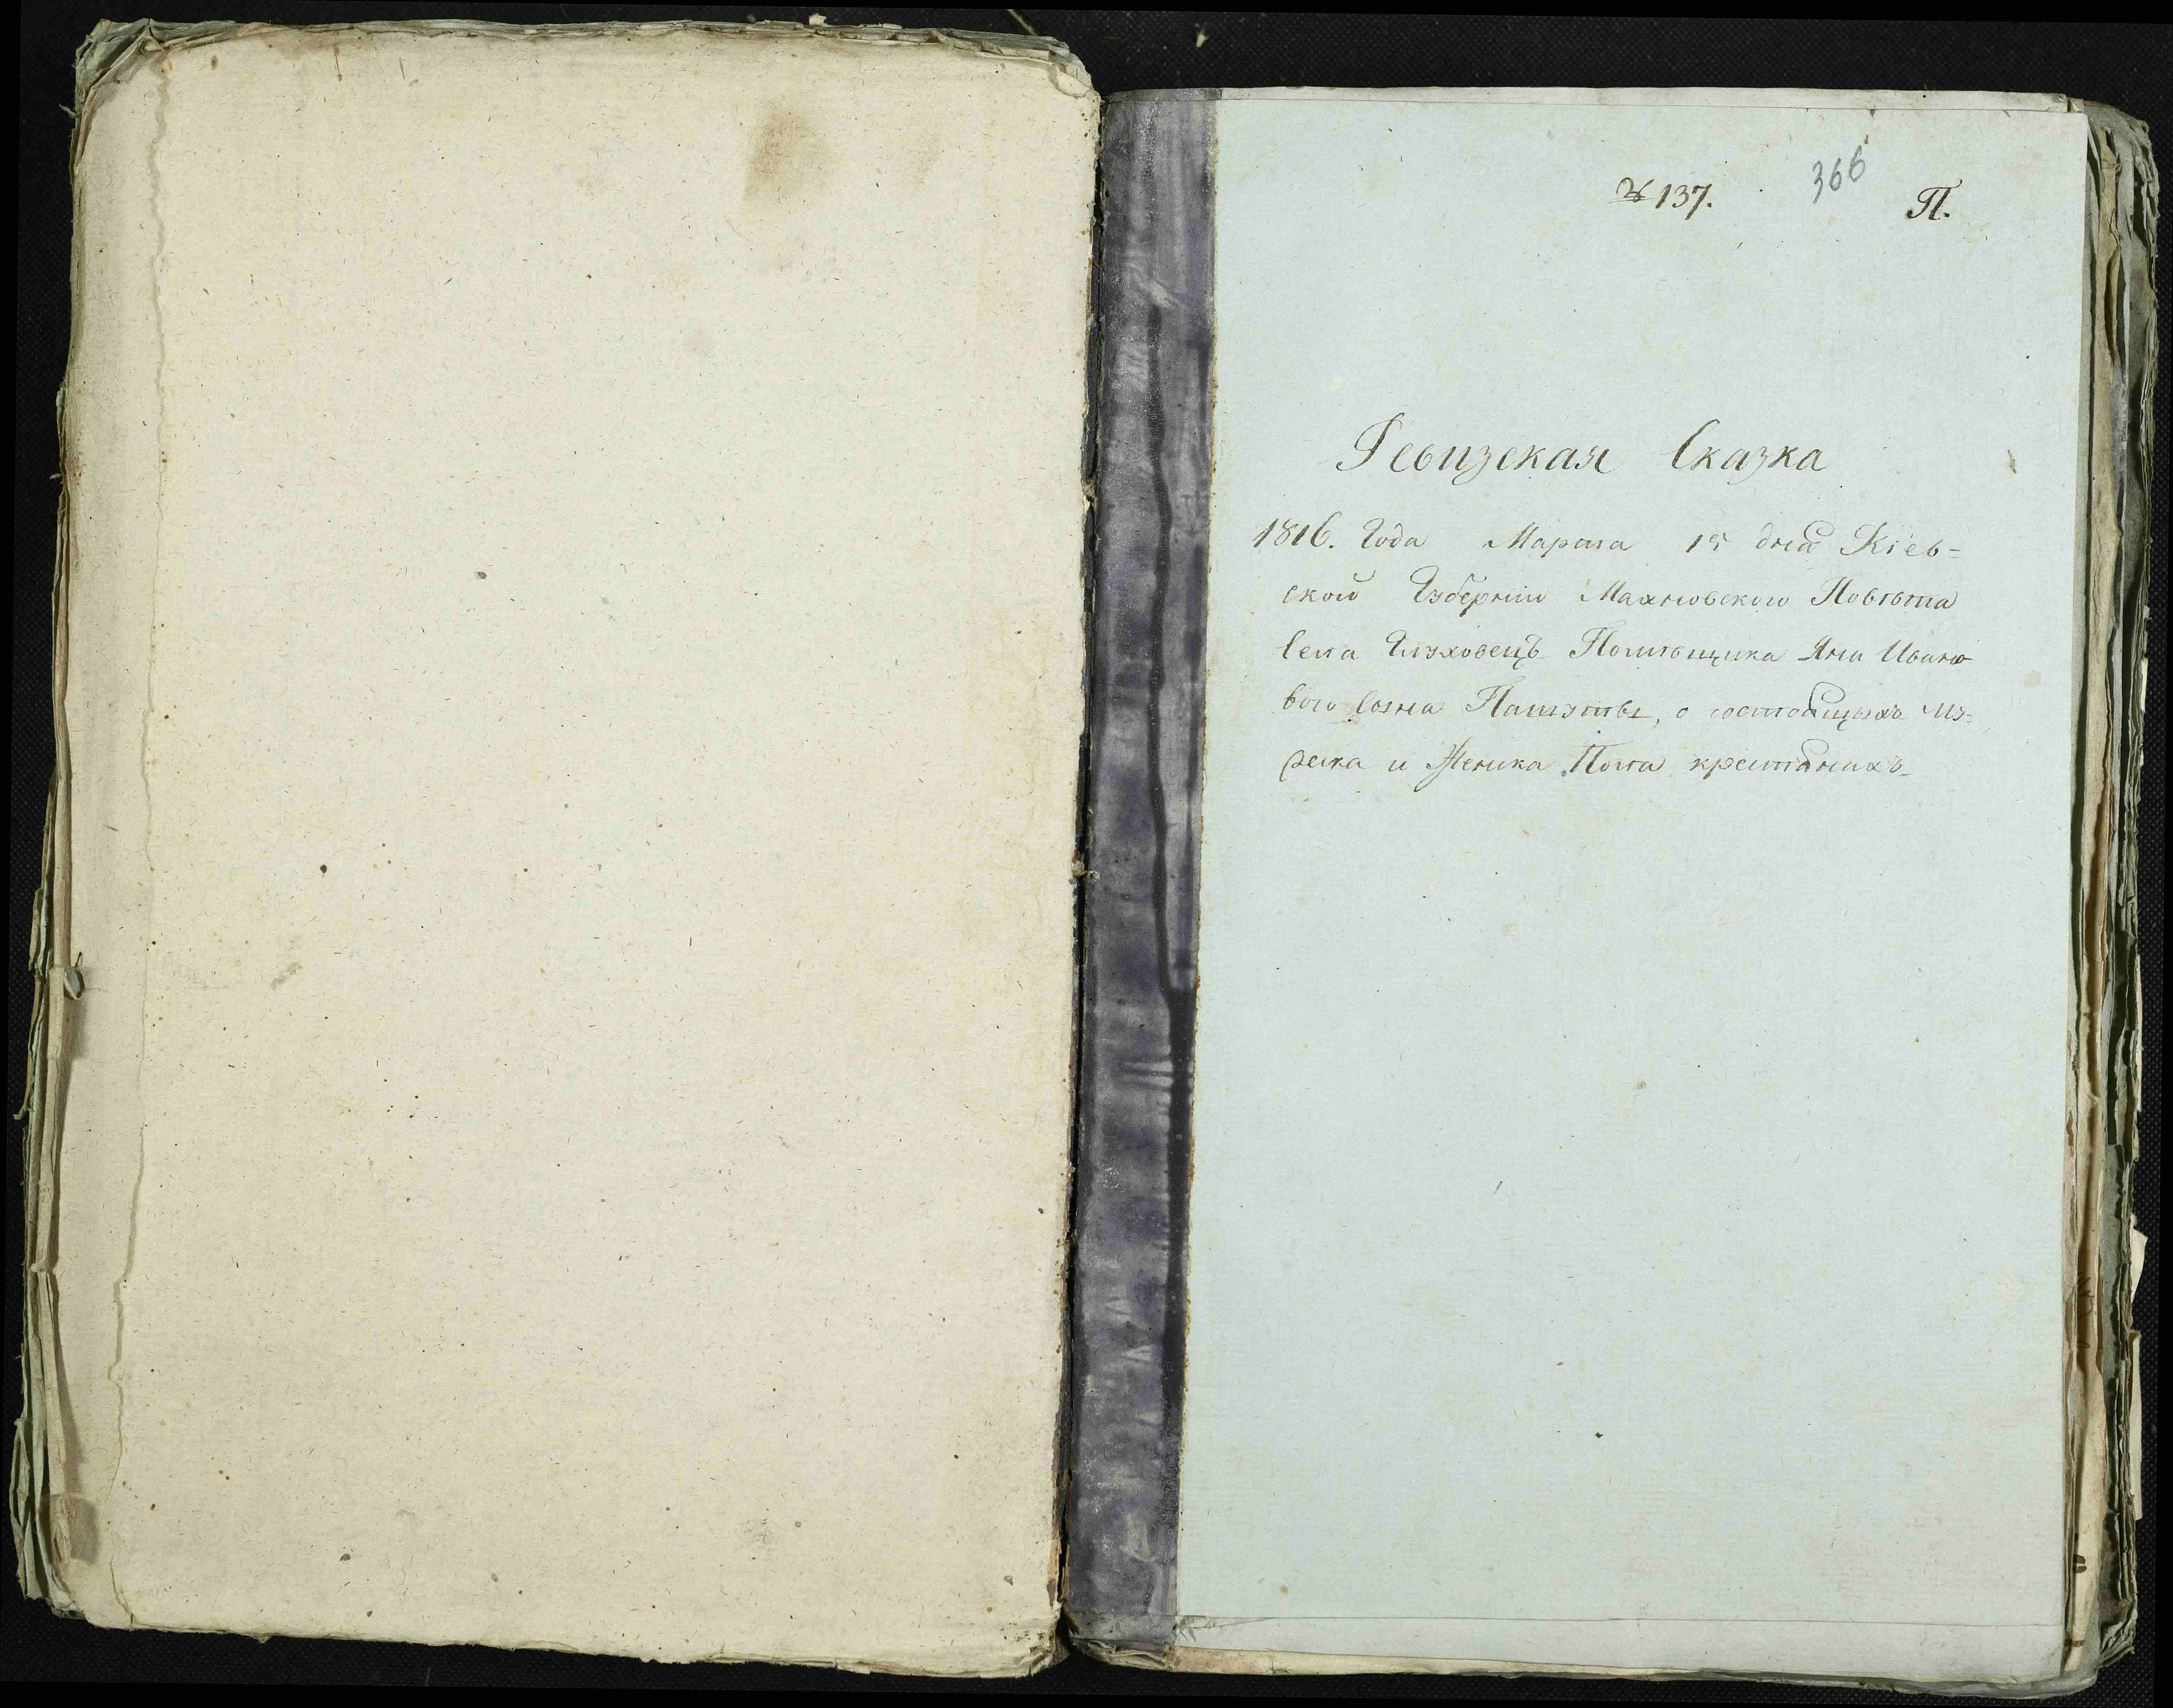 № 137.
366
П.
Ревизская Сказка
1816. Года Марта 15 дня Кіев=
ской Губерніи Махновского Повѣта
Села Глуховецъ Помѣщика Яна Ивано
вого сына , о состоящихъ Муз=
реска и Женска Пола крестянахъ